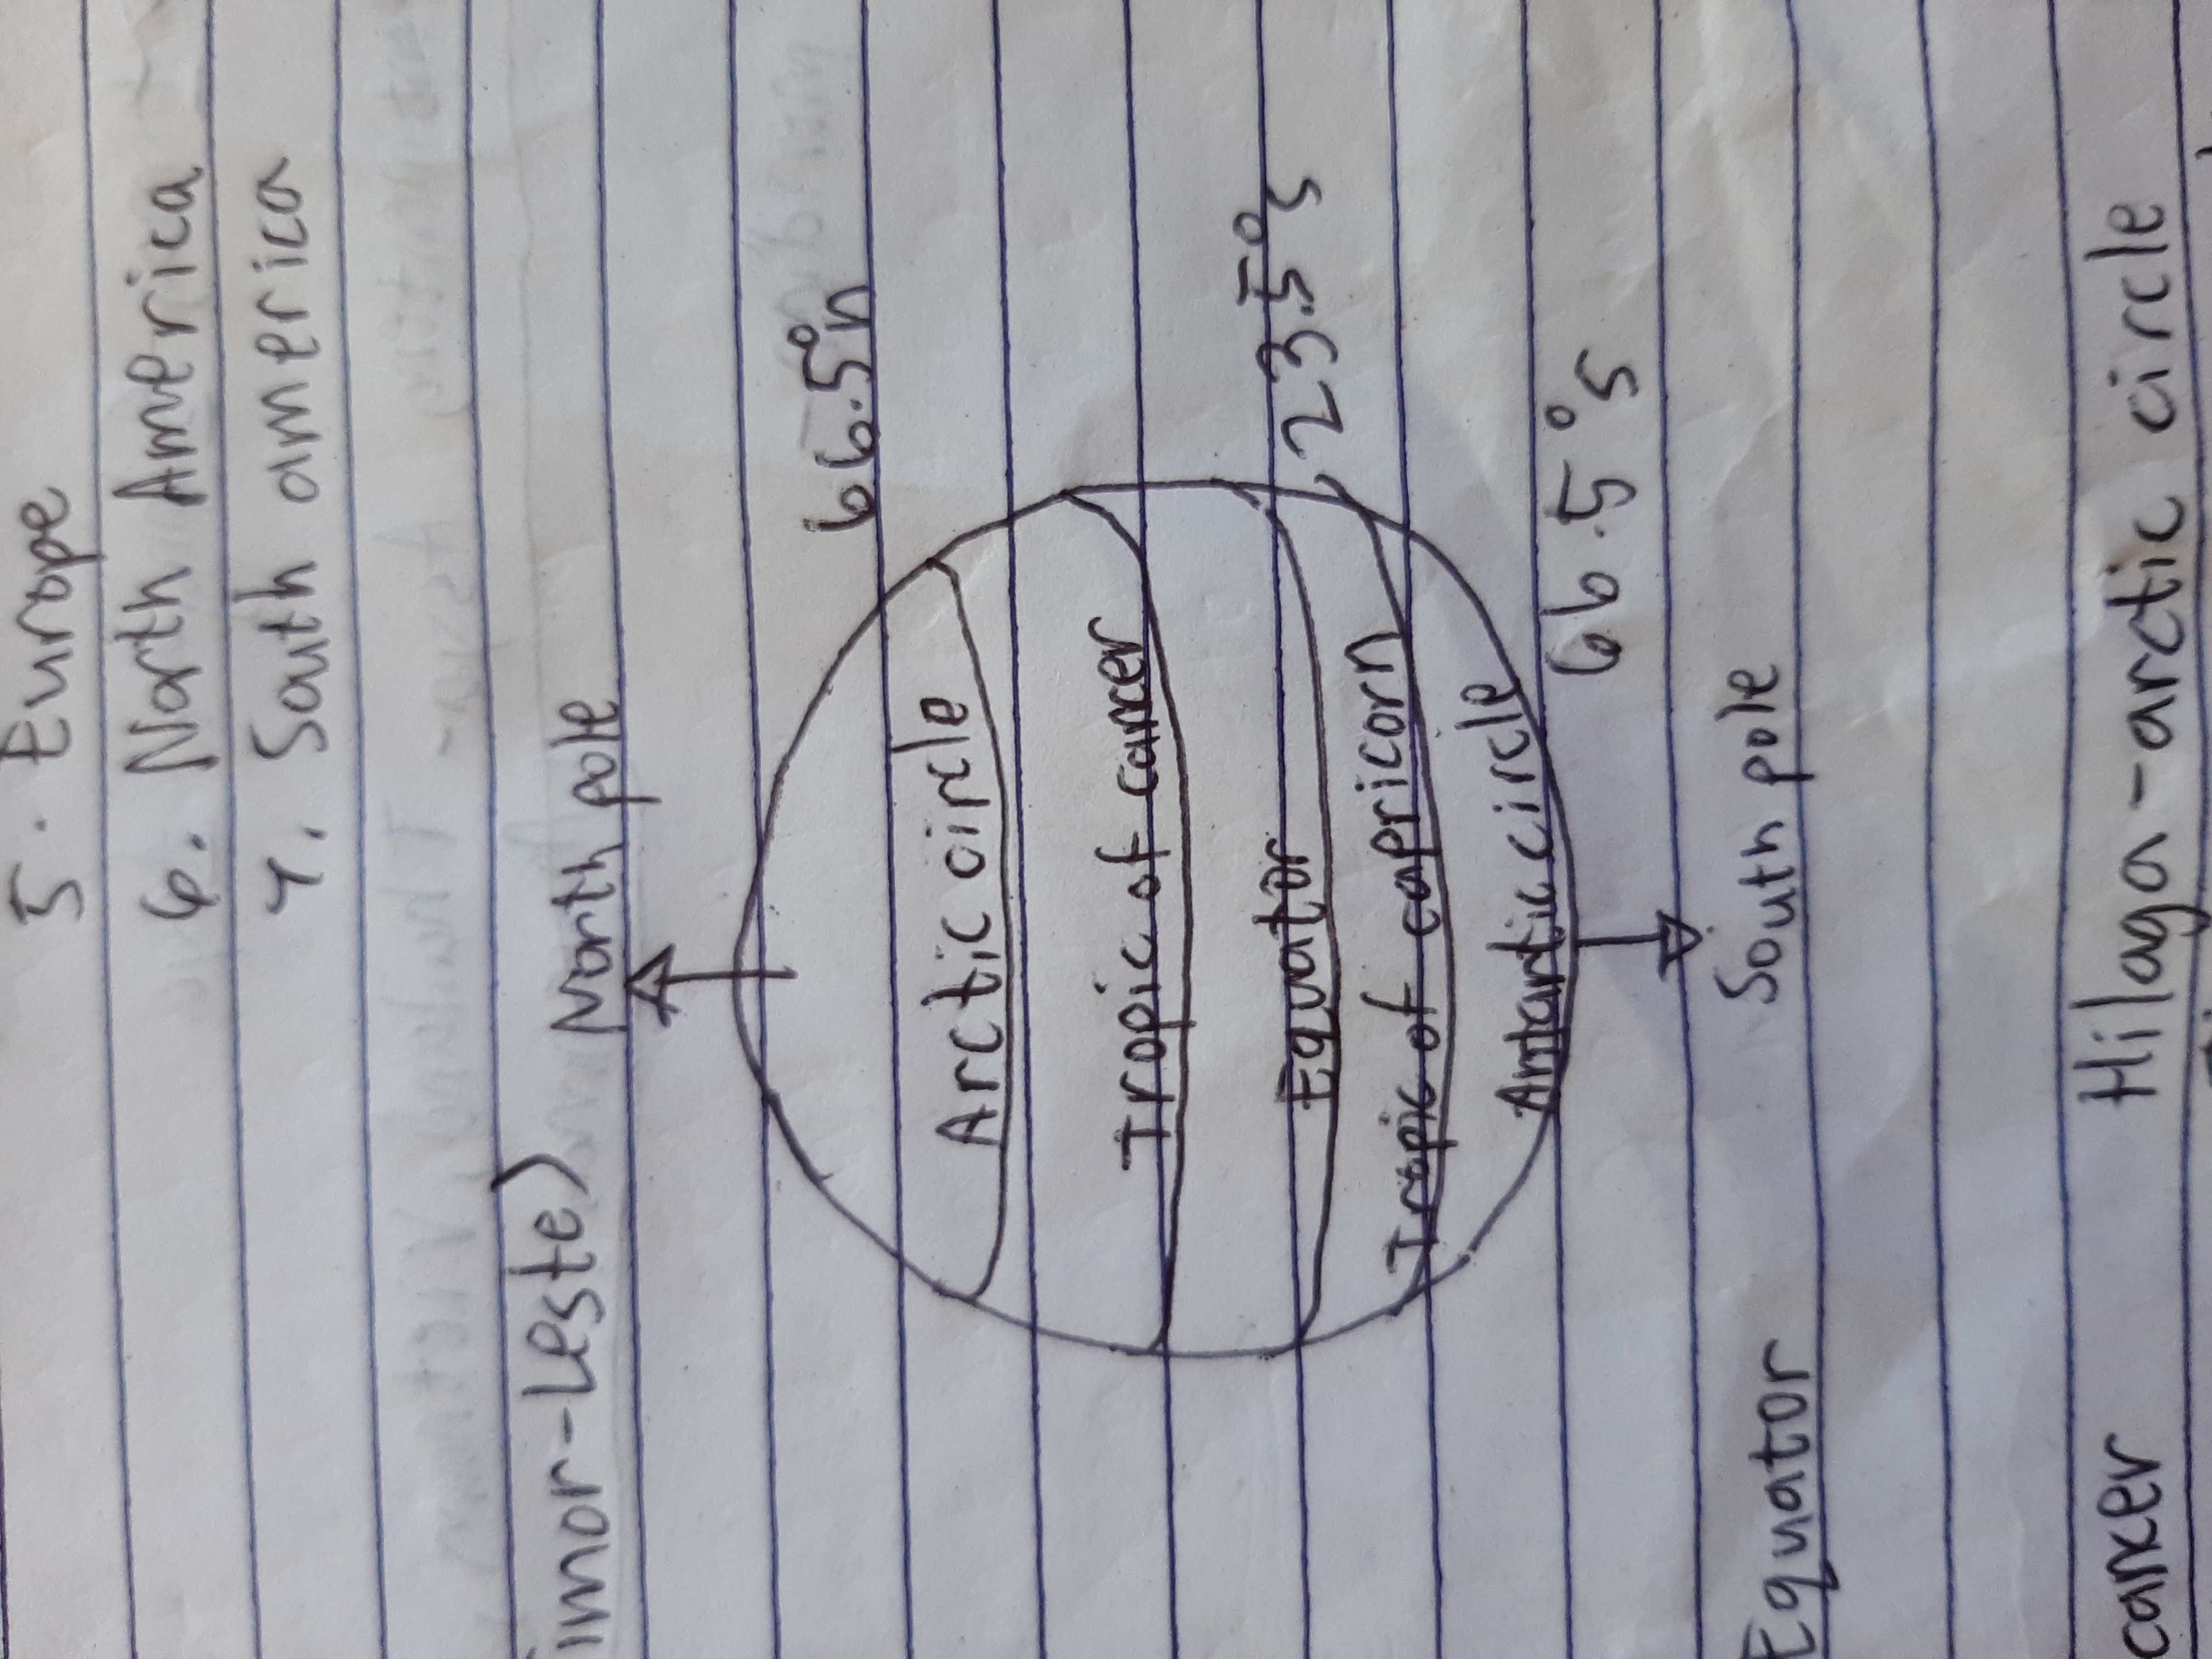 5. Europe
6. North America
7. South america
imor-Leste)
North pole
66.5°n
Arctic circle
Tropic of cancer
23.5° s
Equator
Tropic of capricorn
Antartic circle
66.5° s
South pole
Equator
Hilaga-arctic circle
cancer